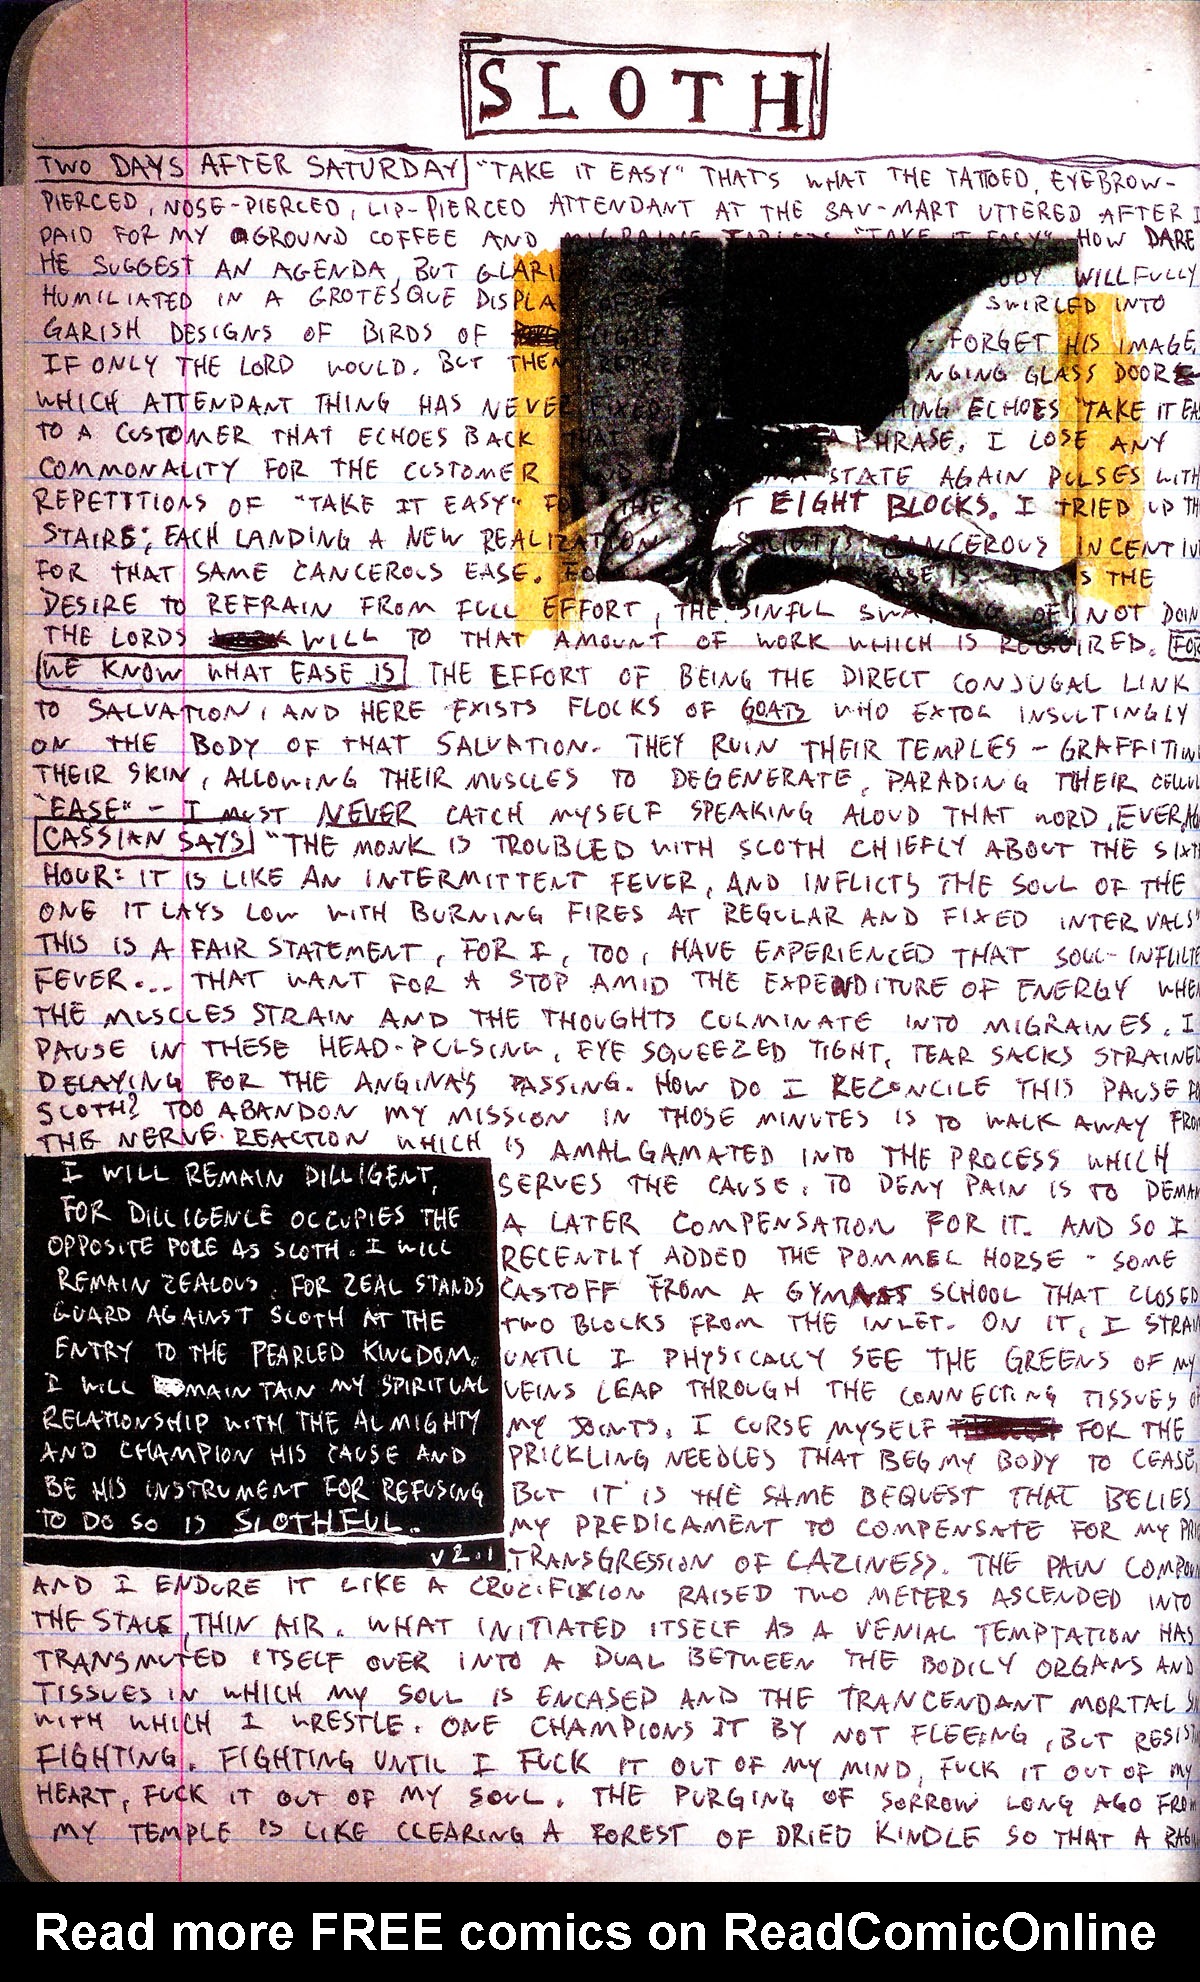 SLOTH
TWO DAYS AFTER SATURDAY "TAKE IT EASY" THAT'S WHAT THE TATTOED, EYEBROW-
PIERCED, NOSE-PIERCED, LIP-PIERCED ATTENDANT AT THE SAV-MART UTTERED AFTER I
PAID FOR MY GROUND COFFEE AND MIGRAINE TABLETS "TAKE IT EASY" HOW DARE
HE SUGGEST AN AGENDA, BUT GLARI BODY WILLFULLY
HUMILIATED IN A GROTESQUE DISPLA OF SWIRLED INTO
GARISH DESIGNS OF BIRDS OF FLIGHT FORGET HIS IMAGE,
IF ONLY THE LORD WOULD. BUT THEN RETREA NGING GLASS DOOR
WHICH ATTENDANT THING HAS NEVER FIXED HING ECHOES "TAKE IT EA
TO A CUSTOMER THAT ECHOES BACK THAT A PHRASE. I LOSE ANY
COMMONALITY FOR THE CUSTOMER STATE AGAIN PULSES WITH
REPETITIONS OF "TAKE IT EASY" FO THE T EIGHT BLOCKS. I TRIED UP TH
STAIRS; EACH LANDING A NEW REALIZATION SOCIETY'S CANCEROUS INCENTIV
FOR THAT SAME CANCEROUS EASE. FO EASE IS IT IS THE
DESIRE TO REFRAIN FROM FULL EFFORT, THE SINFUL SWA OF NOT DOIN
THE LORDS WILL TO THAT AMOUNT OF WORK WHICH IS REQUIRED. FOR
WE KNOW WHAT EASE IS THE EFFORT OF BEING THE DIRECT CONJUGAL LINK
TO SALVATION, AND HERE EXISTS FLOCKS OF GOATS WHO EXTOL INSULTINGLY
ON THE BODY OF THAT SALVATION. THEY RUIN THEIR TEMPLES - GRAFFITIN
THEIR SKIN, ALLOWING THEIR MUSCLES TO DEGENERATE, PARADING THEIR CELLUL
"EASE" - I MUST NEVER CATCH MYSELF SPEAKING ALOUD THAT WORD, EVER AG
CASSIAN SAYS "THE MONK IS TROUBLED WITH SLOTH CHIEFLY ABOUT THE SIXTH
HOUR: IT IS LIKE AN INTERMITTENT FEVER, AND INFLICTS THE SOUL OF THE
ONE IT LAYS LOW WITH BURNING FIRES AT REGULAR AND FIXED INTERVALS"
THIS IS A FAIR STATEMENT, FOR I, TOO, HAVE EXPERIENCED THAT SOUL-INFLICTE
FEVER... THAT WANT FOR A STOP AMID THE EXPENDITURE OF ENERGY WHEN
THE MUSCLES STRAIN AND THE THOUGHTS CULMINATE INTO MIGRAINES. I
PAUSE IN THESE HEAD-PULSING, EYE SQUEEZED TIGHT, TEAR SACKS STRAINED
DELAYING FOR THE ANGINA'S PASSING. HOW DO I RECONCILE THIS PAUSE
SLOTH? TOO ABANDON MY MISSION IN THOSE MINUTES IS TO WALK AWAY FROM
THE NERVE-REACTION WHICH IS AMALGAMATED INTO THE PROCESS WHICH
SERVES THE CAUSE. TO DENY PAIN IS TO DEMAN
A LATER COMPENSATION FOR IT. AND SO I
RECENTLY ADDED THE POMMEL HORSE - SOME
CASTOFF FROM A GYMNAST SCHOOL THAT CLOSED
TWO BLOCKS FROM THE INLET. ON IT, I STRAIN
UNTIL I PHYSICALLY SEE THE GREENS OF MY
VEINS LEAP THROUGH THE CONNECTING TISSUES OF
MY JOINTS. I CURSE MYSELF FOR THE
PRICKLING NEEDLES THAT BEG MY BODY TO CEASE,
BUT IT IS THE SAME BEQUEST THAT BELIES
MY PREDICAMENT TO COMPENSATE FOR MY PRI
TRANSGRESSION OF LAZINESS. THE PAIN COMPOUN
I WILL REMAIN DILLIGENT,
FOR DILLIGENCE OCCUPIES THE
OPPOSITE POLE AS SLOTH. I WILL
REMAIN ZEALOUS. FOR ZEAL STANDS
GUARD AGAINST SLOTH AT THE
ENTRY TO THE PEARLED KINGDOM.
I WILL MAINTAIN MY SPIRITUAL
RELATIONSHIP WITH THE ALMIGHTY
AND CHAMPION HIS CAUSE AND
BE HIS INSTRUMENT FOR REFUSING
TO DO SO IS SLOTHFUL.
V 2.1
AND I ENDURE IT LIKE A CRUCIFIXION RAISED TWO METERS ASCENDED INTO
THE STALE, THIN AIR. WHAT INITIATED ITSELF AS A VENIAL TEMPTATION HAS
TRANSMUTED ITSELF OVER INTO A DUAL BETWEEN THE BODILY ORGANS AND
TISSUES IN WHICH MY SOUL IS ENCASED AND THE TRANCENDANT MORTAL SI
WITH WHICH I WRESTLE. ONE CHAMPIONS IT BY NOT FLEEING, BUT RESISTI
FIGHTING. FIGHTING UNTIL I FUCK IT OUT OF MY MIND, FUCK IT OUT OF MY
HEART, FUCK IT OUT OF MY SOUL. THE PURGING OF SORROW LONG AGO FROM
MY TEMPLE IS LIKE CLEARING A FOREST OF DRIED KINDLE SO THAT A RAGIN
Read more FREE comics on ReadComicOnline